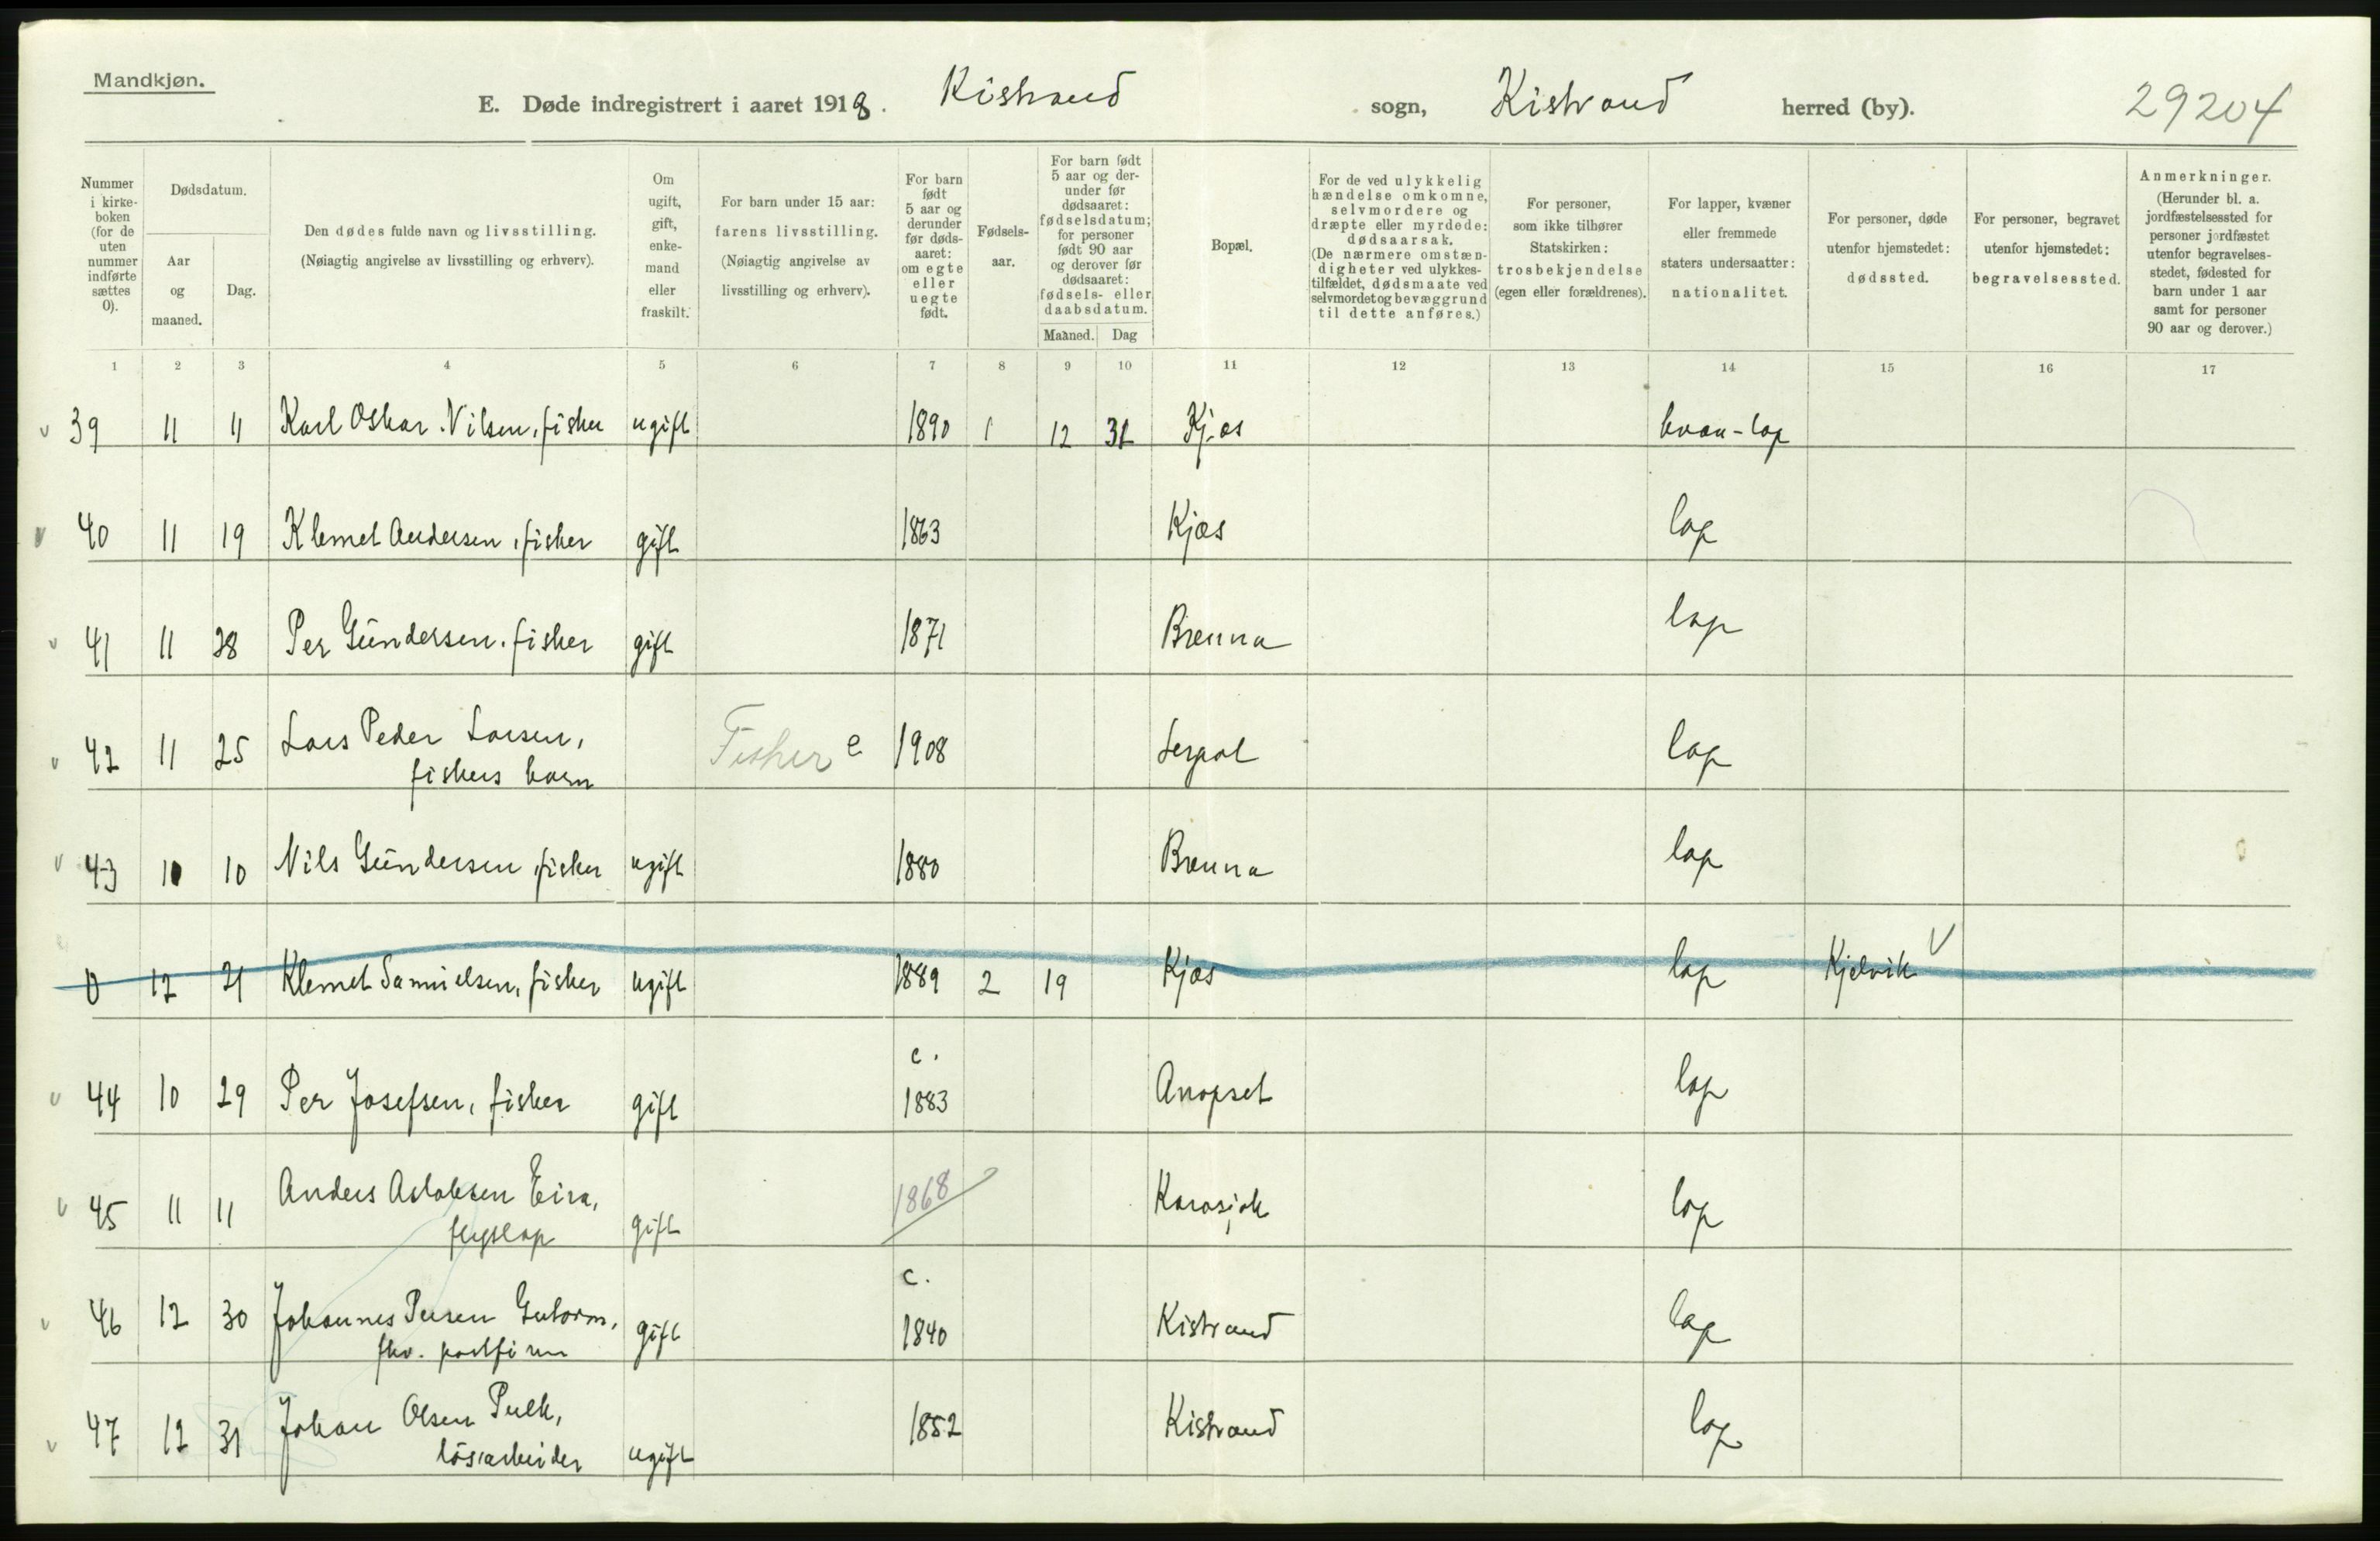 Mandkjøn.
E. Døde indregistrert i aaret 1918. Kistrand sogn, Kistrand herred (by). 29204
Nummer i kirke-boken (for de uten nummer indførte sættes 0).
Dødsdatum.
Aar og maaned.
Dag.
Den dødes fulde navn og livsstilling.
(Nøiagtig angivelse av livsstilling og erhverv).
Om ugift, gift, enke-mand eller fraskilt.
For barn under 15 aar: farens livsstilling.
(Nøiagtig angivelse av livsstilling og erhverv).
For barn født 5 aar og derunder før døds-aaret: om egte eller uegte født.
Fødsels-aar.
For barn født 5 aar og der-under før dødsaaret: fødselsdatum; for personer født 90 aar og derover før dødsaaret: fødsels- eller daabsdatum.
Maaned.
Dag
Bopæl.
For de ved ulykkelig hændelse omkomne, selvmordere og dræpte eller myrdede: dødsaarsak.
(De nærmere omstæn-digheter ved ulykkes-tilfældet, dødsmaate ved selvmordet og bevæggrund til dette anføres.)
For personer, som ikke tilhører Statskirken: trosbekjendelse (egen eller forældrenes).
For lapper, kvæner eller fremmede staters undersaatter: nationalitet.
For personer, døde utenfor hjemstedet: dødssted.
For personer, begravet utenfor hjemstedet: begravelsessted.
Anmerkninger.
(Herunder bl. a. jordfæstelsessted for personer jordfæstet utenfor begravelses-stedet, fødested for barn under 1 aar samt for personer 90 aar og derover.)
1 2 3 4 5 6 7 8 9 10 11 12 13 14 15 16 17
39 11 11 Karl Oskar Nilsen, fisker ugift 1890 1 12 31 Kjæs kvæn-lap
40 11 19 Klemet Andersen, fisker gift 1863 Kjæs lap
41 11 28 Per Gündersen, fisker gift 1871 Brenna lap
42 11 25 Lars Peder Larsen, Fisker e 1908 lap
fiskers barn
43 10 10 Nils Gündersen, fisker ugift 1880 Brenna lap
0 12 21 Klemet Samuelsen, fisker ugift 1889 2 19 Kjæs lap Kjelvik V
c.
44 10 29 Per Josefsen, fisker gift 1883 Anopset lap
45 11 11 Anders Aslaksen Eira, gift 1868 Karasjok lap
flyslap
c.
46 12 30 Johannes Persen Gutorm, gift 1840 Kistrand lap
fhv. postfinn
47 12 31 Johan Olsen Pulk, ugift 1852 Kistrand lap
løsarbeider